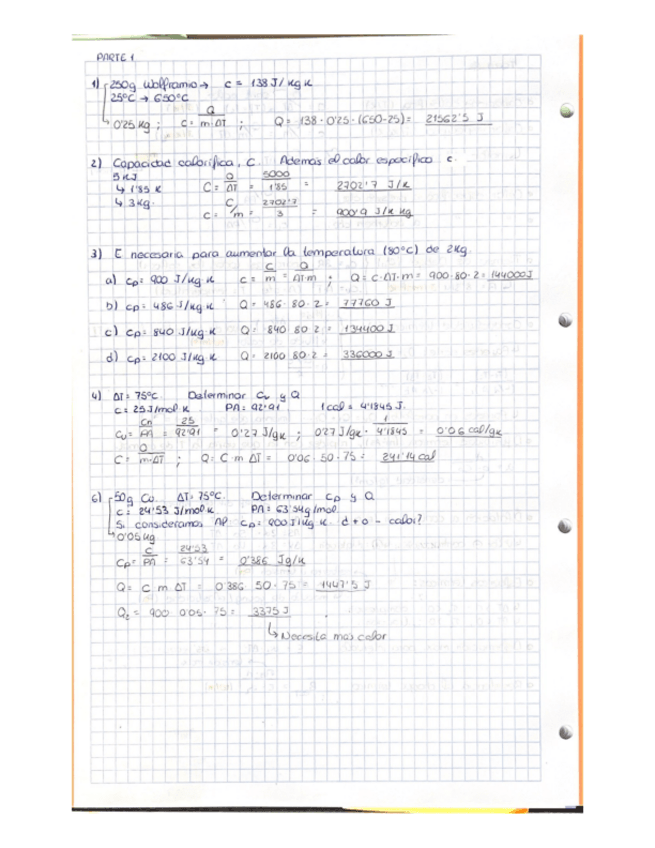 PARTE 1
1) 250g Wolframio → c = 138 J/kg K
25ºC → 650ºC
↳ 0'25 kg ; c = Q / m·ΔT ; Q = 138 · 0'25 · (650-25) = 21562'5 J
2) Capacidad calorífica, C. Además el calor específico c.
5 KJ
↳ 1'85 K C = Q / ΔT = 5000 / 1'85 = 2702'7 J/K
↳ 3 kg. c = C / m = 2702'7 / 3 = 900'9 J/K kg
3) E necesaria para aumentar la temperatura (80ºC) de 2kg.
a) cp = 900 J/kg K c = C / m = Q / ΔT·m ; Q = c·ΔT·m = 900·80·2 = 144000J
b) cp = 486 J/kg K Q = 486 · 80 · 2 = 77760 J
c) cp = 840 J/kg·K Q = 840 80 2 = 134400 J
d) cp = 2100 J/kg K Q = 2100 80·2 = 336000 J
4) ΔT = 75ºC. Determinar Cv y Q
c = 25 J/mol K PA = 92'91 1 cal = 4'1845 J.
Cv = Cn / PA = 25 / 92'91 = 0'27 J/gK ; 0'27 J/gK · 1 / 4'1845 = 0'06 cal/gK
C = Q / m·ΔT ; Q = C m ΔT = 0'06 · 50 · 75 = 241'14 cal
6) 50g Cu. ΔT = 75ºC. Determinar cp y Q
c = 24'53 J/mol K. PA = 63'54g/mol.
Si consideramos Al cp = 900 J/kg K. d + o - calor?
↳ 0'05 kg
Cp = C / PA = 24'53 / 63'54 = 0'386 Jg/K
Q = C m ΔT = 0'386 50 · 75 = 1447'5 J
Q₂ = 900 0'05 · 75 = 3375 J
↳ Necesita más calor